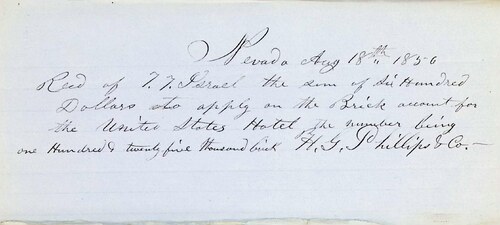 Nevada Aug 18th 1856
Recd of T. J. Israel the sum of Six Hundred
Dollars to apply on the Brick acount for
the United States Hotel the number being
one Hundred & twenty five thousand brick H. G. Phillips & Co.